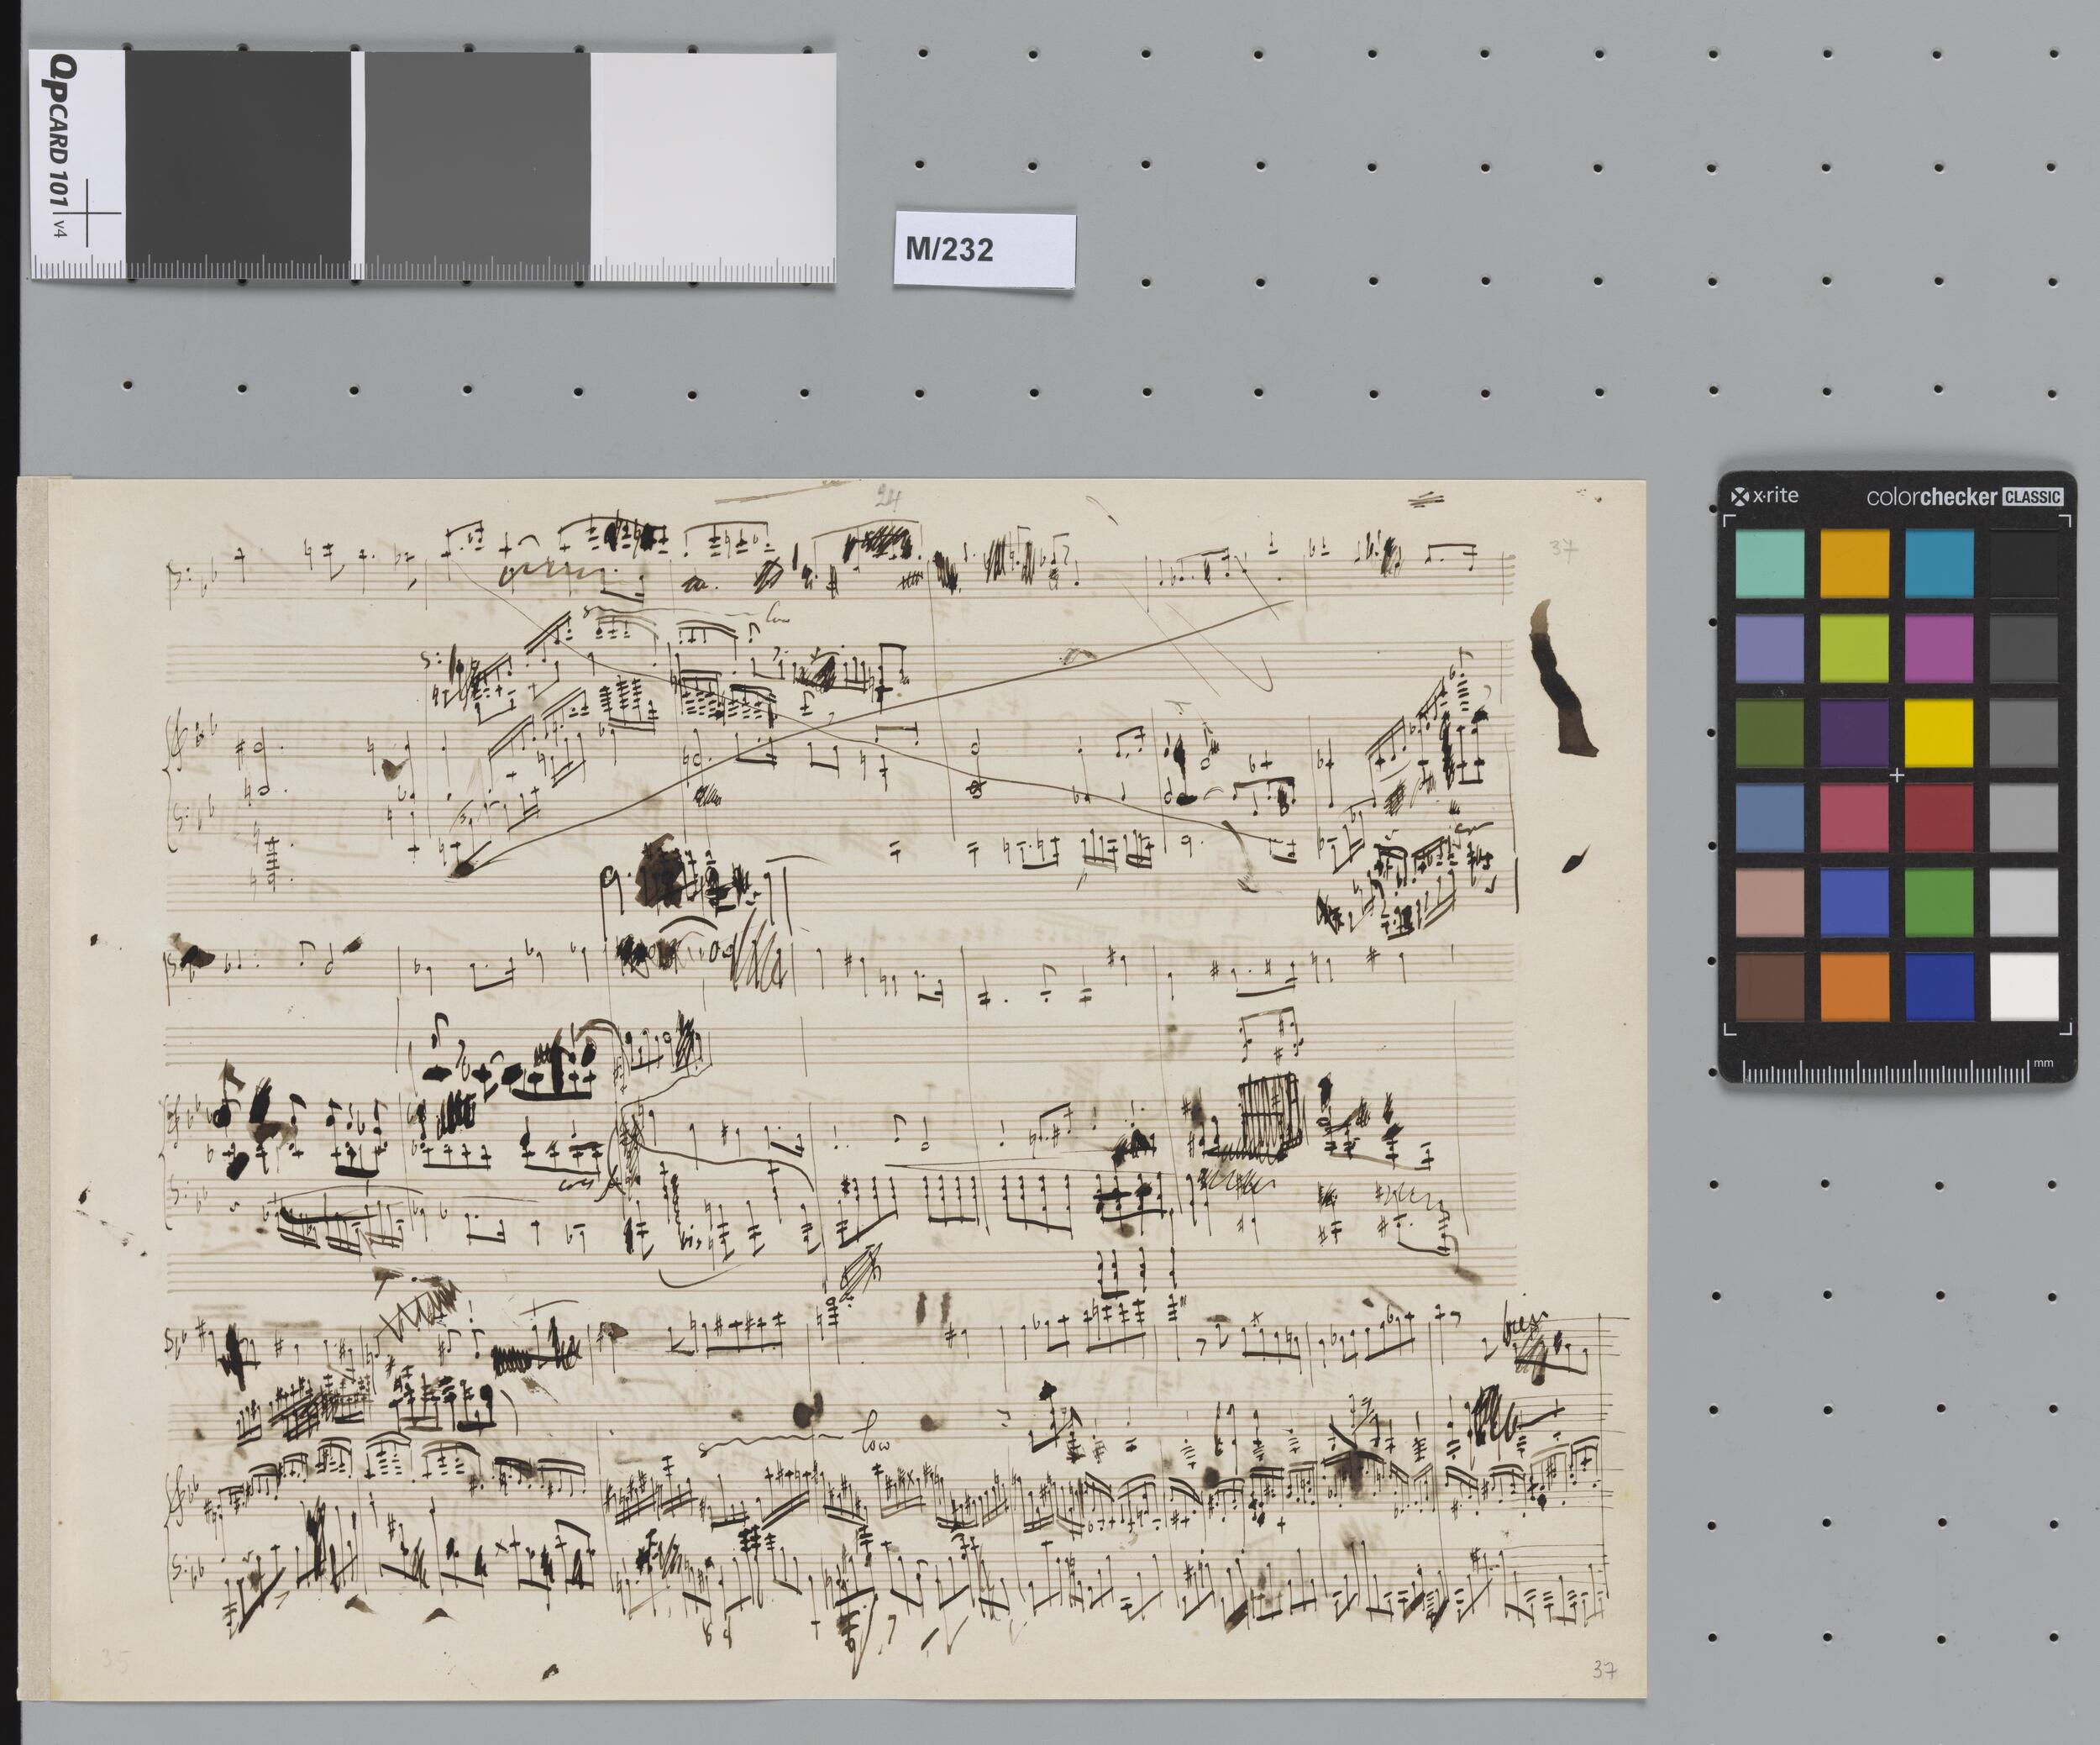 QPCARD 101 v4
M/232
x-rite colorchecker CLASSIC
24
37
loco
bis
loco
mm
35
37